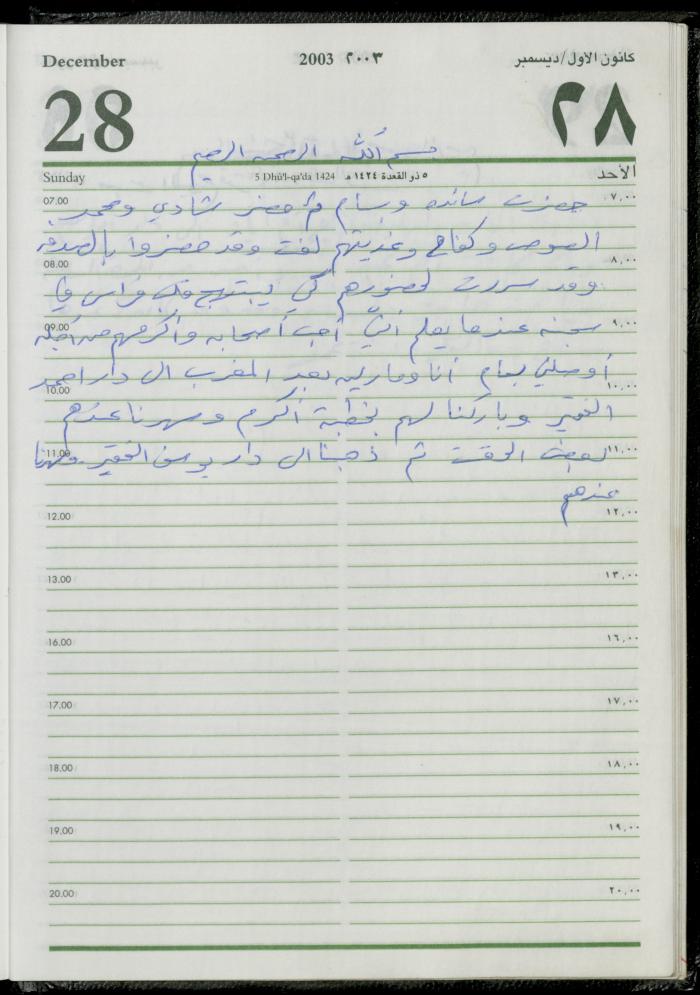 December 2003 ٢٠٠٣ كانون الاول/ديسمبر
28 ٢٨
بسم الله الرحمن الرحيم
Sunday 5 Dhü'l-qa'da 1424 ٥ ذو القعدة ١٤٢٤ هـ الأحد
07.00 ٧,٠٠
حضرت سائده وسام ثم حضر شادي ومحمد
الصوص وكفاح وغديتهم لفت وقد حضروا بالصدفة
08.00 ٨,٠٠
وقد سررت لحضورهم كي يبتهج قلب فراس في
09.00 ٩,٠٠
سجنه عندما يعلم أنّي أحب أصحابه وأكرمهم من أجله
أوصلني بسام أنا وماريه بعد المغرب الى دار احمد
10.00 ١٠,٠٠
الفقير وباركنا لهم بخطبة أكرم وسهرنا عندهم
11.00 ١١,٠٠
لبعض الوقت ثم ذهبنا الى دار يوسف الفقير وسهرنا
عندهم
12.00 ١٢,٠٠
13.00 ١٣,٠٠
16.00 ١٦,٠٠
17.00 ١٧,٠٠
18.00 ١٨,٠٠
19.00 ١٩,٠٠
20.00 ٢٠,٠٠